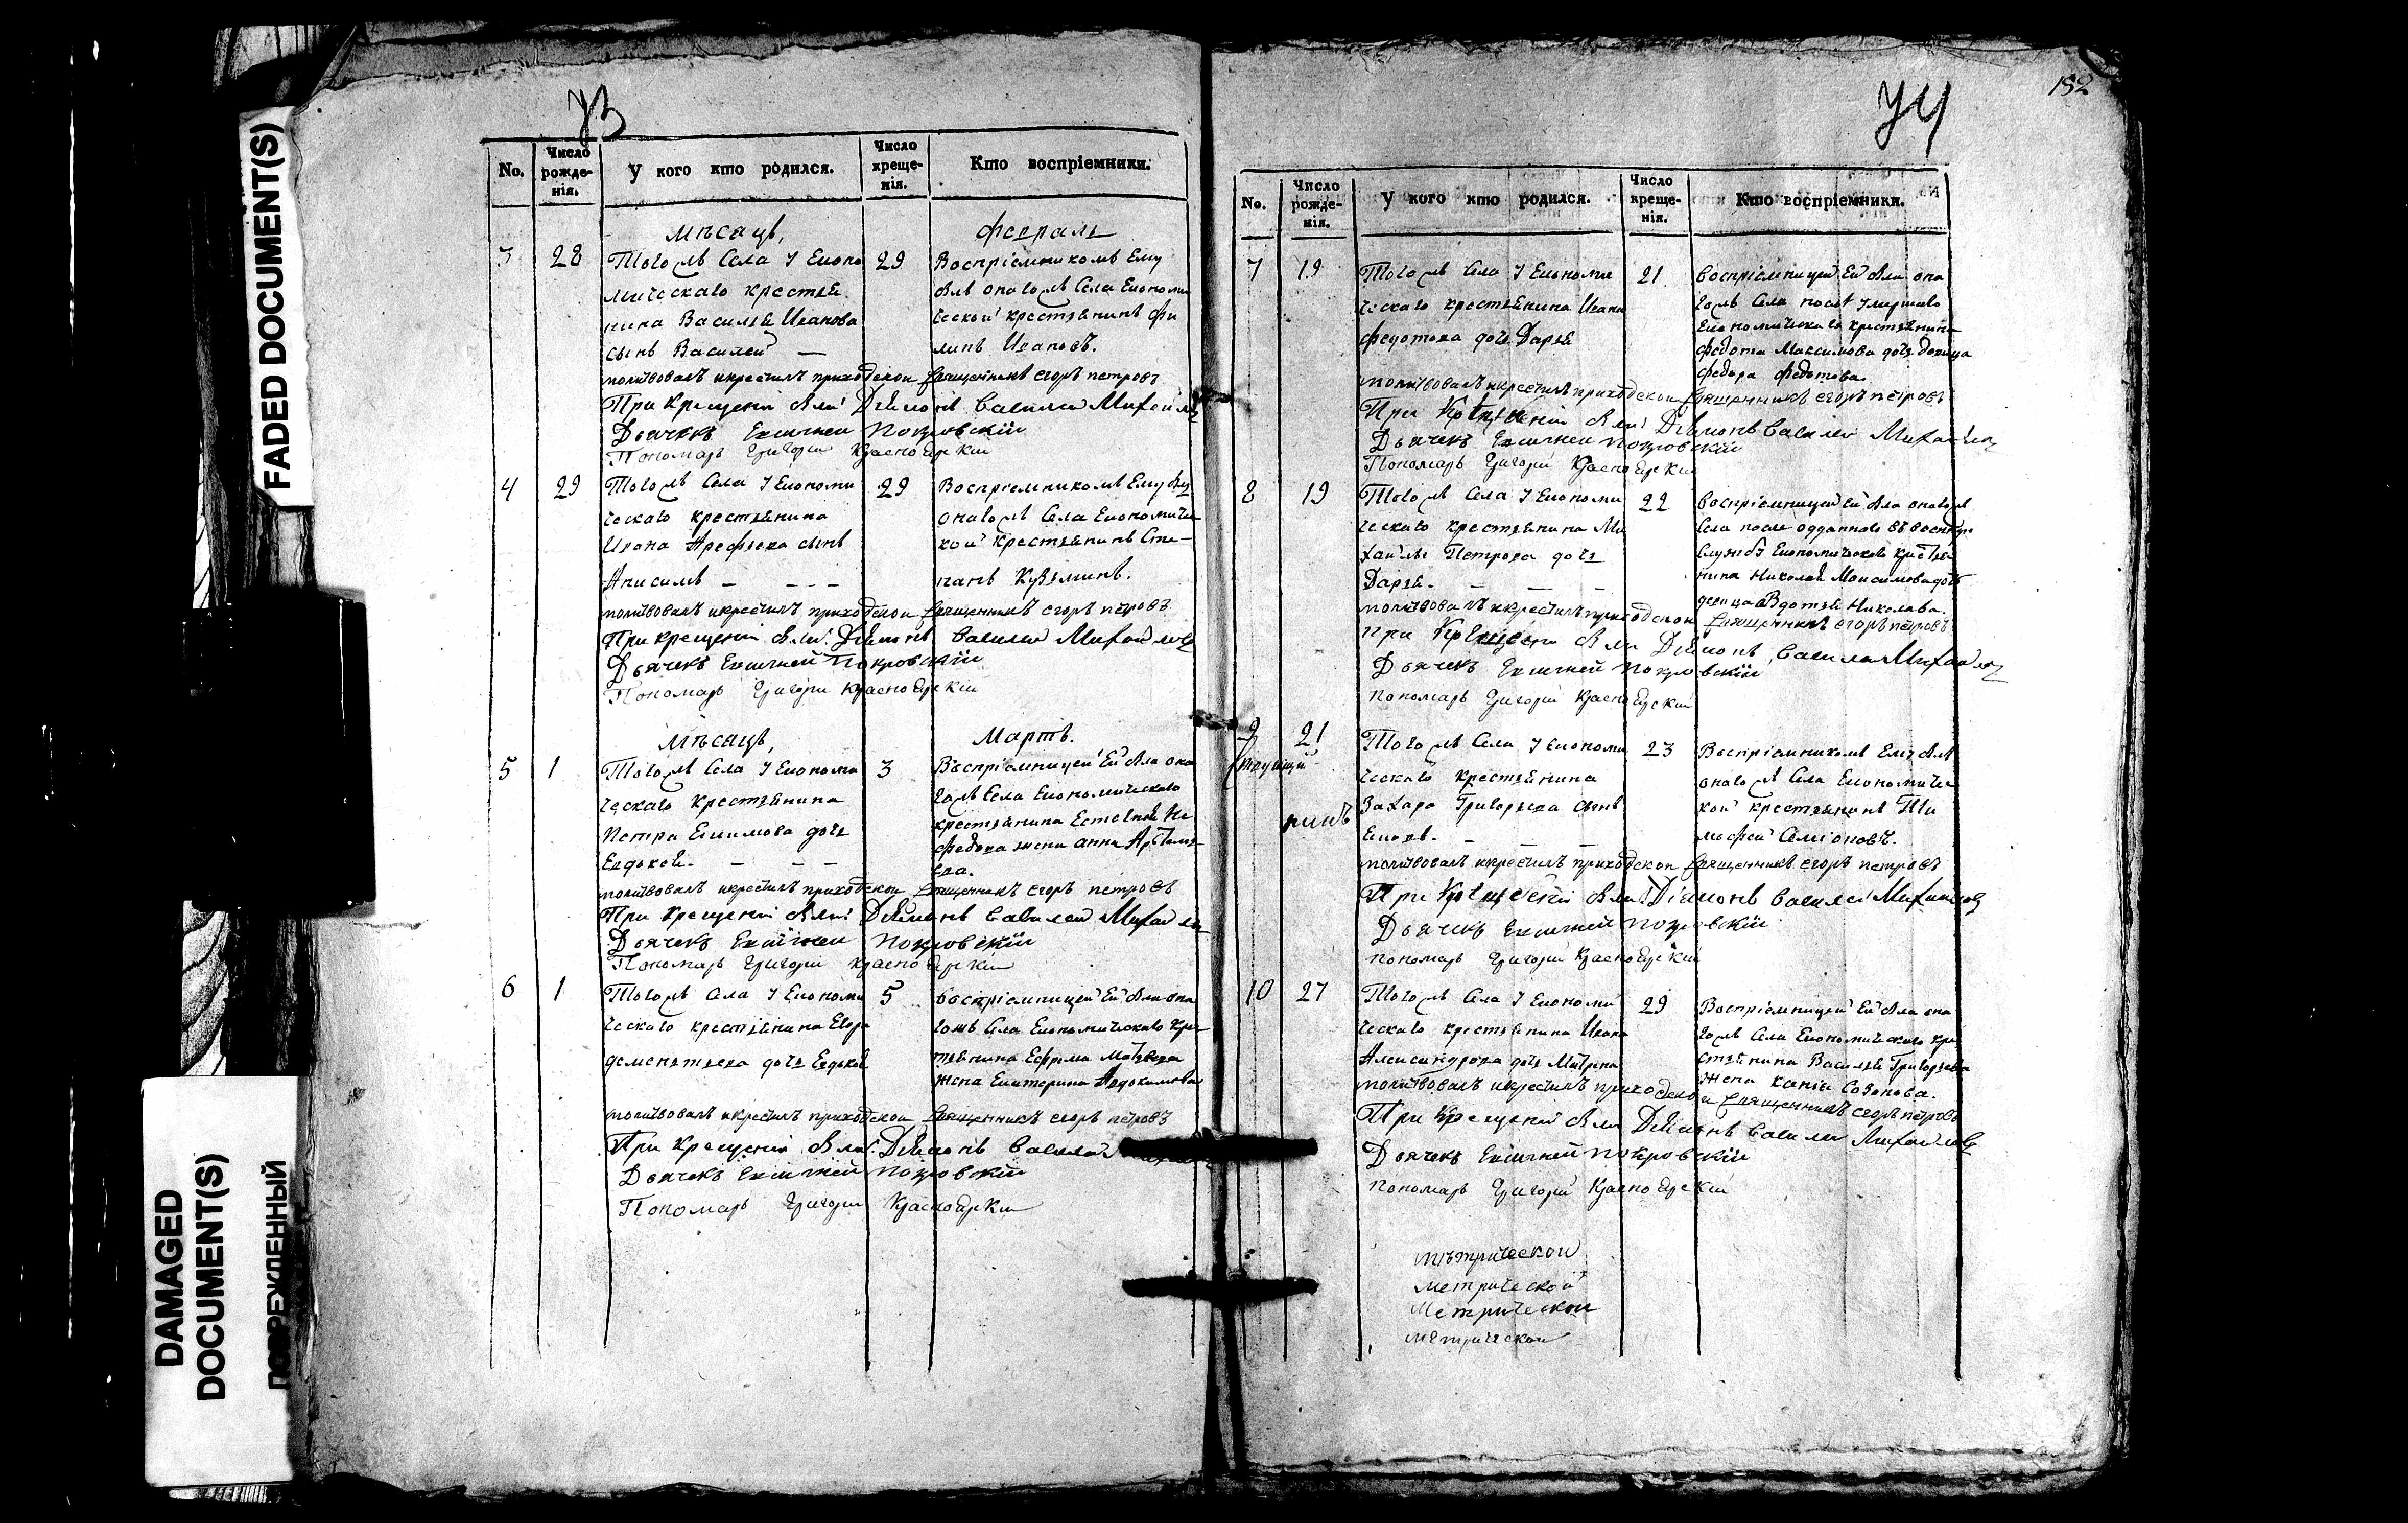 FADED DOCUMENT(S)
DAMAGED
DOCUMENT(S)
ПОВРЕЖДЕННЫЙ
No.
Число рождения.
У кого кто родился.
Число крещенія.
Кто воспріемники.
Мѣсяцъ, Февраль
3 28 29
Тогожъ Села У Еконо
мическаго крестья
нина Василья Иванова
сынъ Василей —
Воспріемникомъ Ему
былъ оногожъ Села Економи
ческой крестьянинъ Фи
липъ Ивановъ.
молитвовалъ и крестилъ приходской священникъ егоръ петровъ
При Крещеніи были Дьяконъ Василей Михайловъ
Дьячекъ Евсигней Покровскій
Пономарь Григорий Красноярскій
4 29 29
Тогожъ Села У Економи
ческаго крестьянина
Ивана Арефьева сынъ
Анисимъ — - - -
Воспріемникомъ Ему былъ
оногожъ Села Економичес
кой крестьянинъ Сте-
панъ Кузьминъ.
молитвовалъ и крестилъ приходской священникъ егоръ петровъ
При крещеніи были Дьяконъ Василей Михайловъ
Дьячекъ Евсигней Покровскій
Пономарь Григорий Красноярскій
Мѣсяцъ, Мартъ.
5 1 3
Тогожъ Села У Економи
ческаго крестьянина
Петра Екимова дочь
Евдокея. — — —
Воспріемницей Ей была оно
гожъ Села Економическаго
крестьянина Естегнея Не
федова жена Анна Артемь-
ева.
молитвовалъ и крестилъ приходской священникъ егоръ петровъ
При крещеніи были Дьяконъ Василей Михайловъ
Дьячекъ Евсигней Покровскій
Пономарь Григорий Красноярскій
6 1 5
Тогожъ Села У Економи
ческаго крестьянина Егора
Дементьева дочь Евдокея
Воспріемницей Ей была оно
гожъ Села Економическаго кре-
стьянина Ефрема Матвеева
жена Екатерина Авдокимова
молитвовалъ и крестилъ приходской священникъ егоръ петровъ
При Крещеніи были Дьяконъ Василей
Дьячекъ Евсигней Покровскій
Пономарь Григорий Красноярскій
152
No.
Число рожденія.
У кого кто родился.
Число крещенія.
Кто воспріемники.
7 19 21
Тогожъ Села У Економи
ческаго крестьянина Ивана
Федотова дочь Дарья
Воспріемницей Ей была оно
гожъ Села послѣ умершаго
Економическаго крестьянина
Федота Максимова дочь девица
Федора Федотова
молитвовалъ и крестилъ приходской священникъ егоръ петровъ
При Крещеніи были Дьяконъ Василей Михайловъ
Дьячекъ Евсигней Покровскій
Пономарь Григорий Красноярскій
8 19 22
Тогожъ Села У Економи
ческаго крестьянина Ми
хайлы Петрова дочь
Дарья. — — —
Воспріемницей Ей была оногожъ
Села после отданнаго въ военную
службу Економическаго крестья
нина Николая Максимова дочь
девица Авдотья Николаева.
молитвовалъ и крестилъ приходской священникъ егоръ петровъ
При Крещении были Дьяконъ Василей Михайловъ
Дьячекъ Евсигней Покровскій
Пономарь Григорий Красноярскій
9 21 23
Тогожъ Села У Економи
ческаго крестьянина
Захара Григорьева сынъ
Воспріемникомъ Ему былъ
оногожъ Села Економичес
кой крестьянинъ Ти
мофей Семионовъ.
молитвовалъ и крестилъ приходской священникъ егоръ петровъ
При Крещеніи были Дьяконъ Василей Михайловъ
Дьячекъ Евсигней Покровскій
Пономарь Григорий Красноярскій
10 27 29
Тогожъ Села У Економи
ческаго крестьянина Ивана
Александрова дочь Матрена
Воспріемницей Ей была оно
гожъ Села Економическаго кре
стьянина Василья Григорьева
жена Ксенія Созонова.
молитвовалъ и крестилъ приходской священникъ егоръ петровъ
При Крещеніи были Дьяконъ Василей Михайловъ
Дьячекъ Евсигней Покровскій
Пономарь Григорий Красноярскій
мѣтрической
метрической
Метрической
метрической